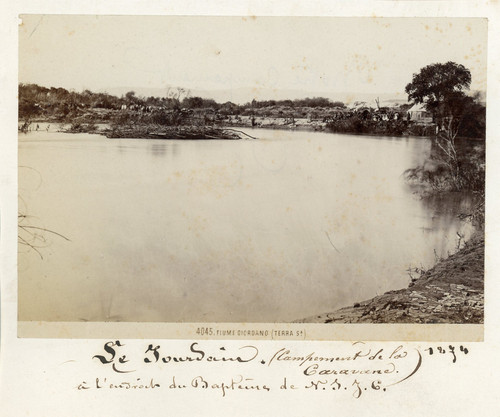 4045. FIUME GIORDANO (TERRA Sᵗᵃ)
Le Jourdain. (Campement de la Caravane.) 1874
à l'endroit du Baptême de N. S. J. C.